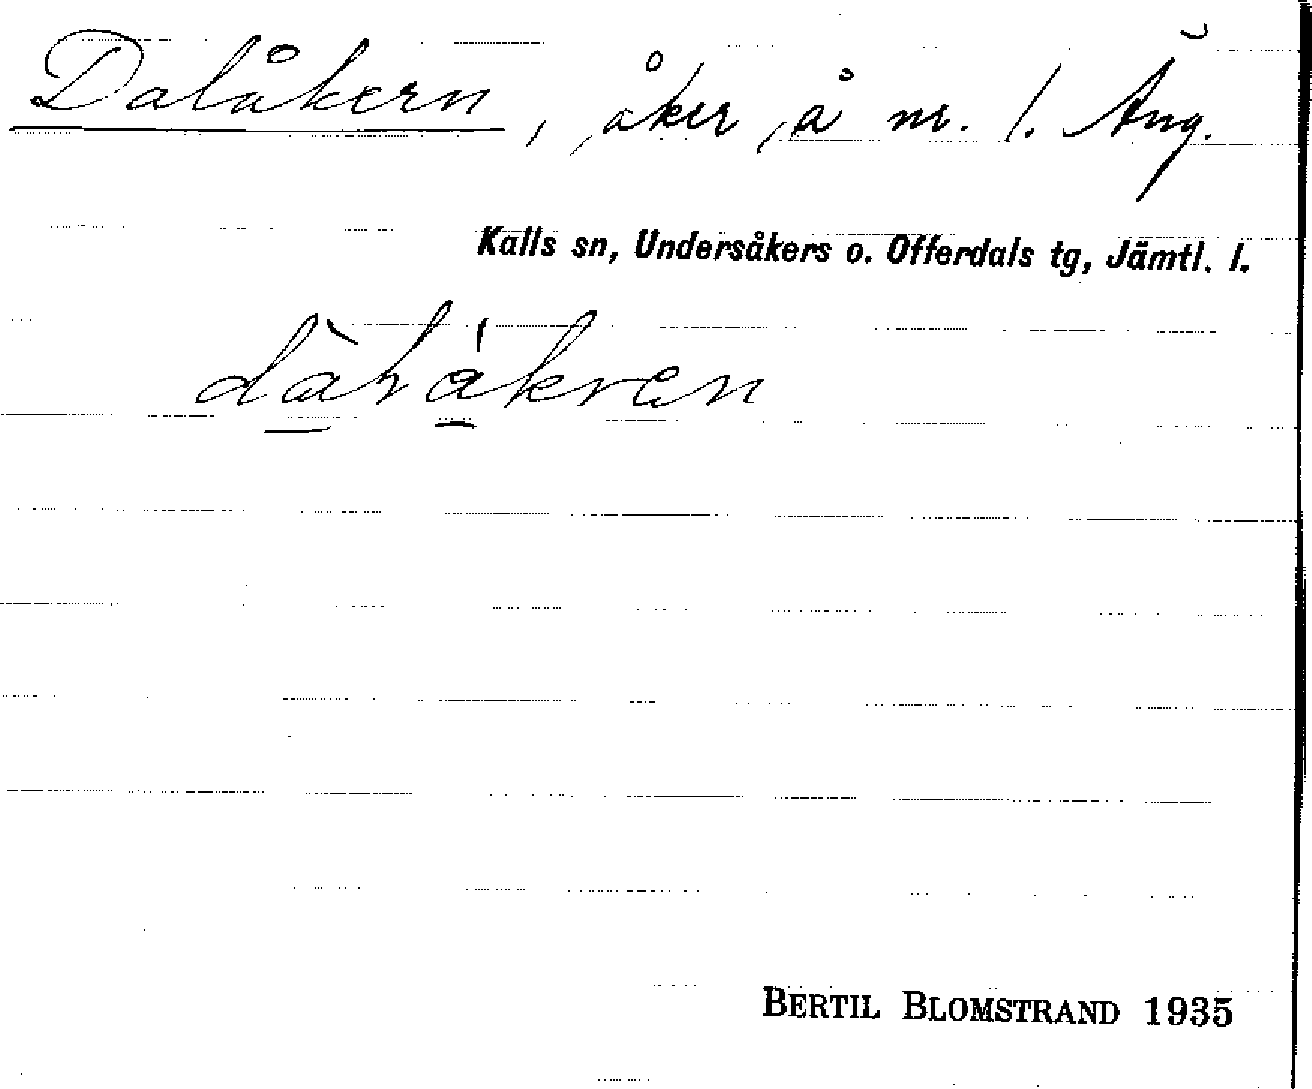 Dalåkern, åker, å nr. 1. Äng.
Kalls sn, Undersåkers o. Offerdals tg, Jämtl. l.
BERTIL BLOMSTRAND 1935